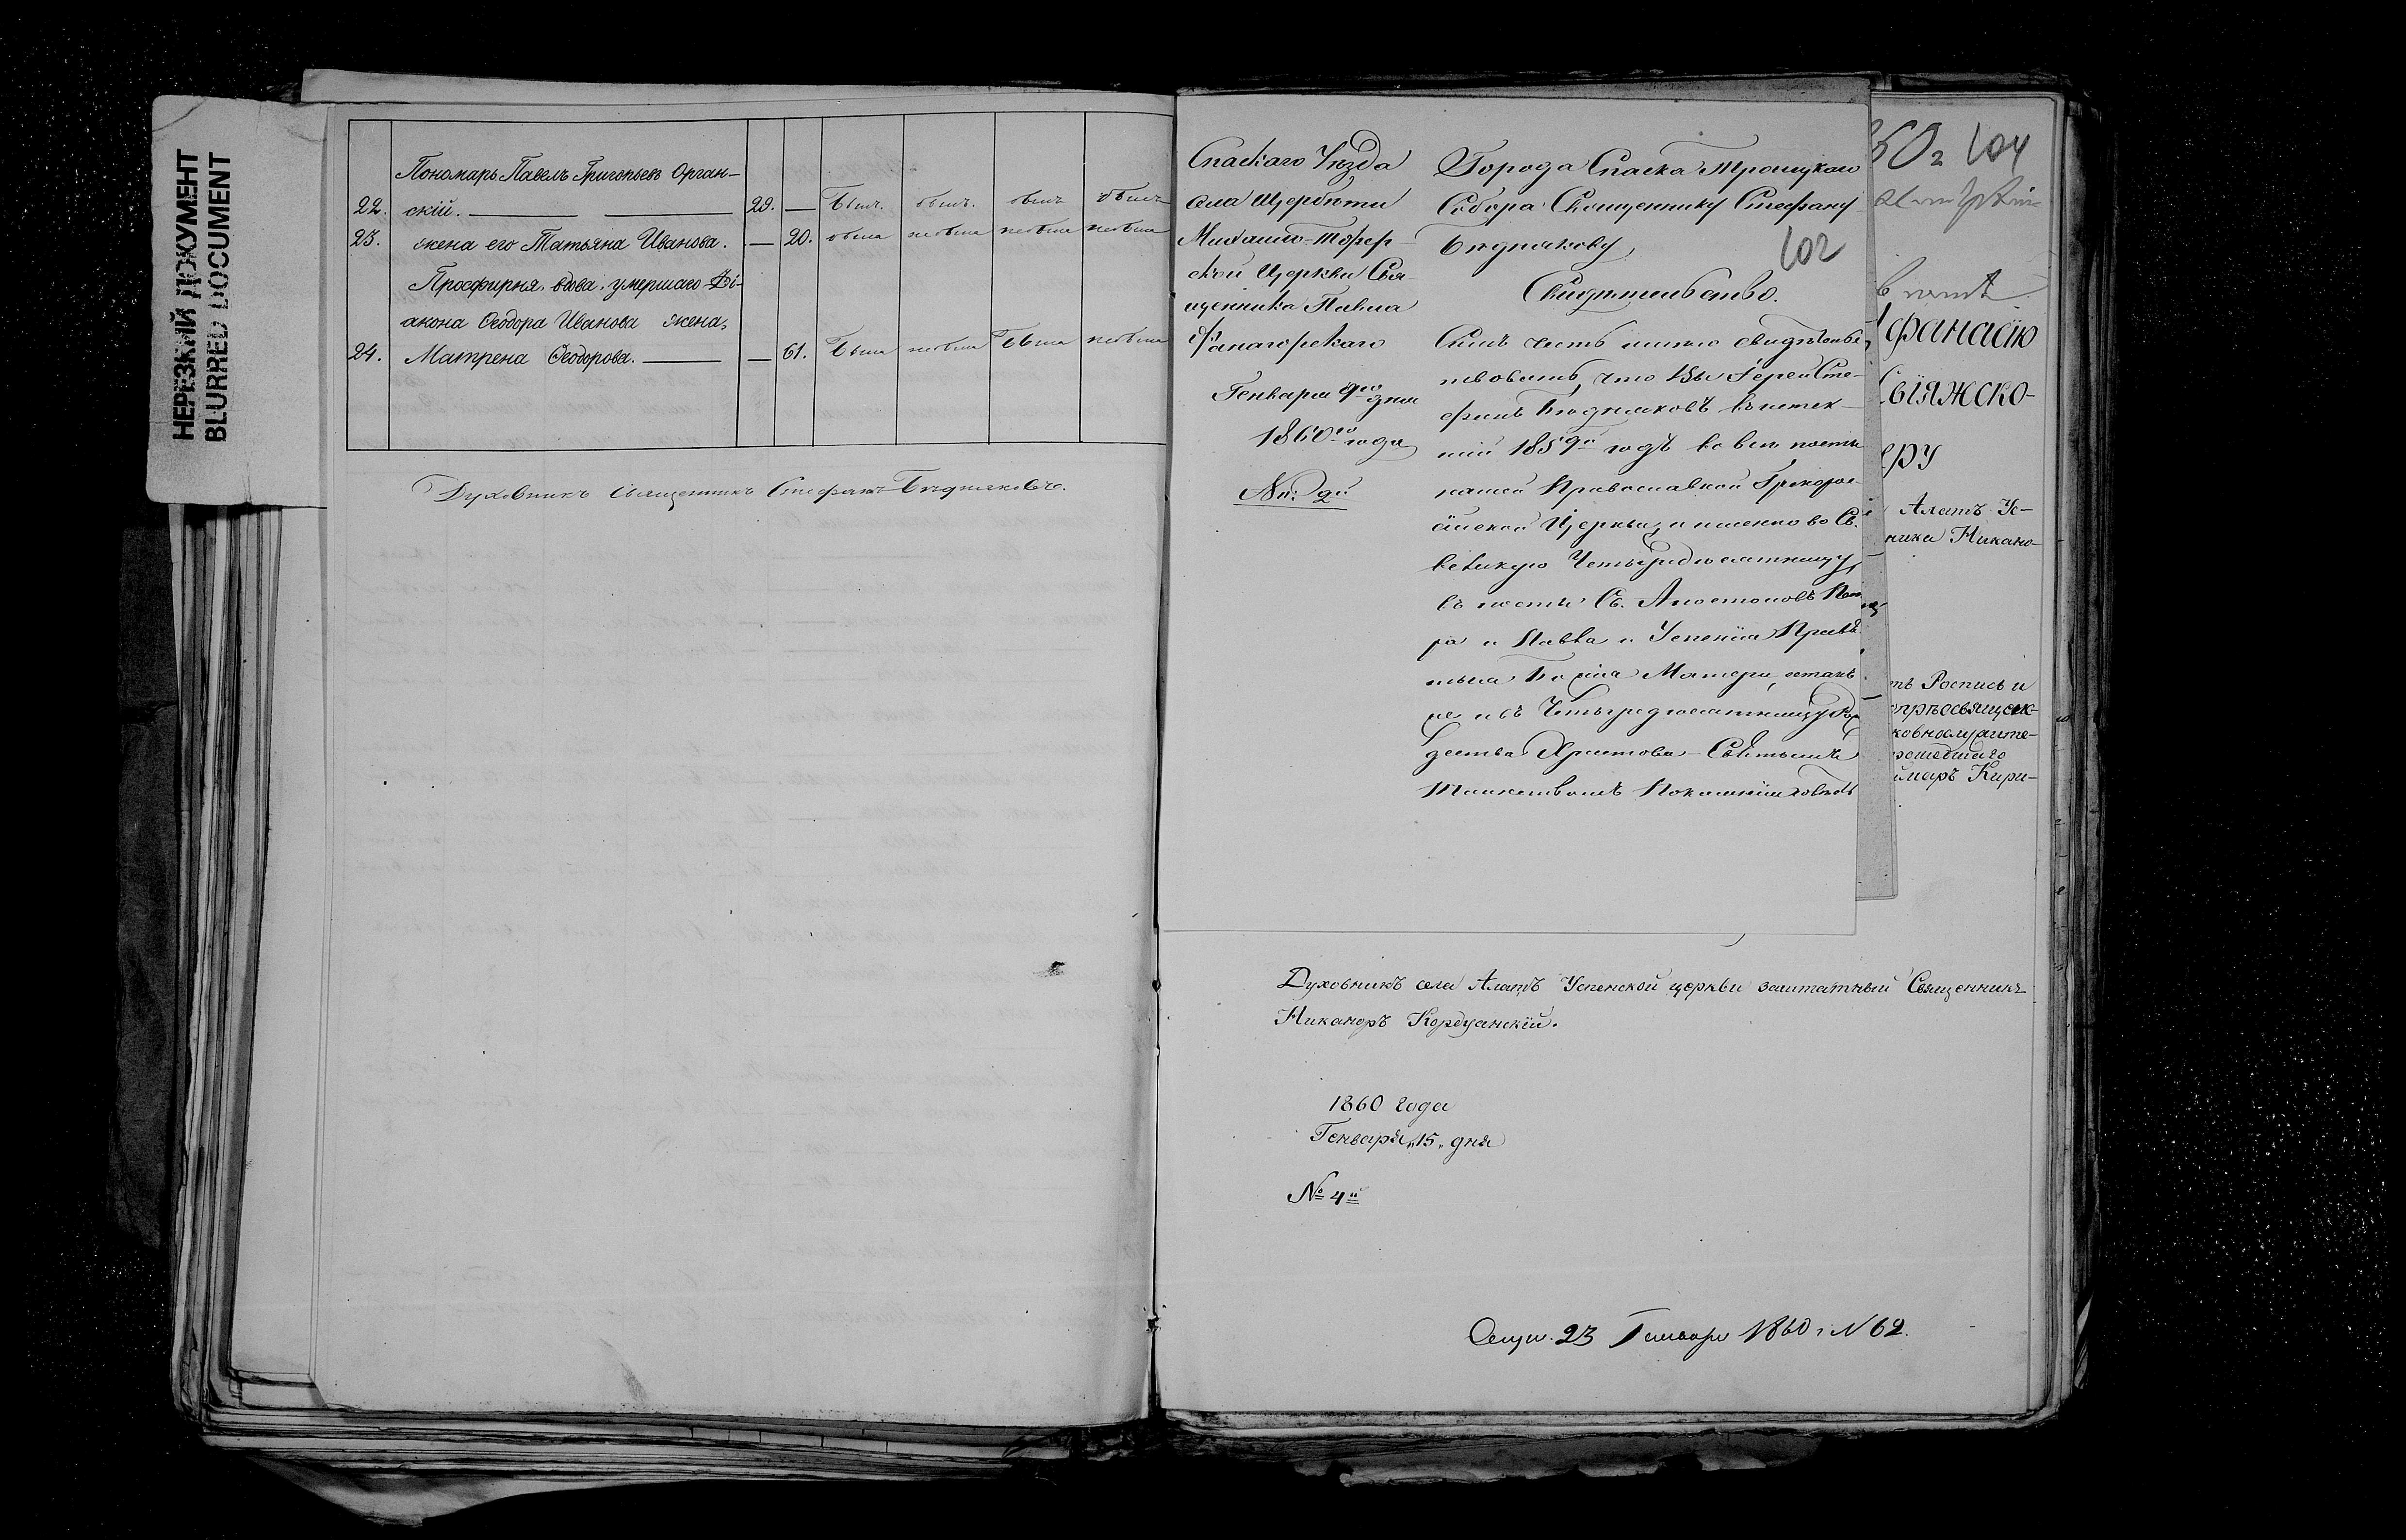 НЕРЕЗКИЙ ДОКУМЕНТ
BLURRED DOCUMENT
Пономарь Павелъ Григорьевъ Орган-
22. скій. 29. — былъ. былъ. былъ былъ
23. жена его Татьяна Иванова. — 20. была небыла небыла небыла
Просфирня, вдова, умершаго Ді-
акона Ѳеодора Иванова жена,
24. Матрена Ѳеодорова. — 61. была небыла была небыла
Духовникъ священникъ Стефанъ Бѣдняковъ.
Спаскаго Уѣзда
села Щербѣти
Михаило-
ской Церкви Свя-
щенника Павла
Фанагорскаго
Генваря 9го дня
1860го года
№й 2й
Города Спаска Троицкаго
Собора Священнику Стефану
Бѣднякову,
102
Свидѣтельство.
Симъ честь имѣю свидѣтель-
ствовать, что Вы Іерей Сте-
фанъ Бѣдняковъ въ истек-
шій 1859й годъ во всѣ посты
нашей Православной Грекорос-
сійской Церкви, и именно во Св.
великую Четыредесятницу,
въ посты Св. Апостоловъ Пет
ра и Павла и Успенія Пресвя.
тыя Божія Матери, а также
и въ Четыредесятницу Рож
дества Христова Святымъ
Таинствомъ Покаянія
104
Афанасію
Свіяжско-
еру
Алатъ Ус-
ника Никано-
ть Роспись и
Духовникъ села Алатъ Успенской церкви заштатный Священникъ
Никаноръ Кордуанскій.
1860 года
Генваря „15„ дня
№ 4й
23 Генваря 1860 г. N 62.